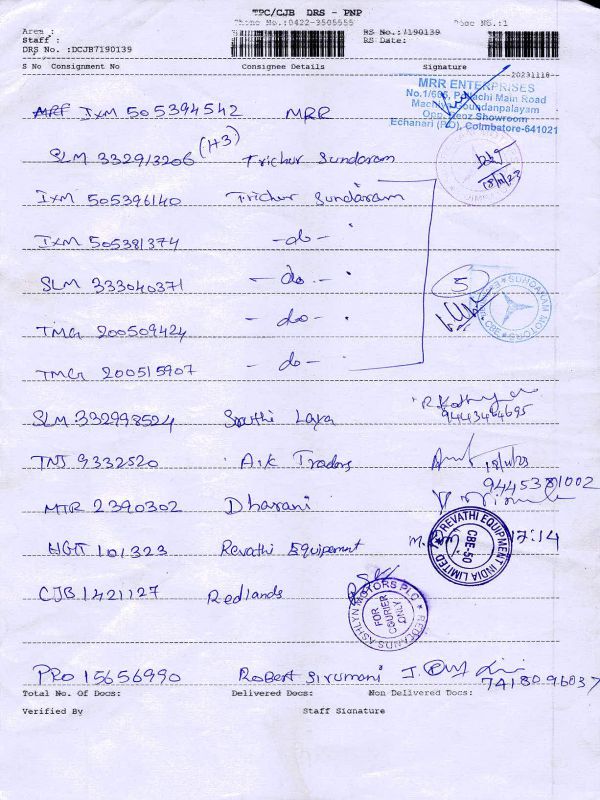 TPC/CJB DRS - PNP
Phone No.:0422-3505555
Area :
Staff :
DRS No. :DCJB7190139
RS No.:7190139
RS Date:
Doc No.:1
S No Consignment No Consignee Details Signature
20231118
MRR ENTERPRISES
No.1/605, Pollachi Main Road
Machiya Goundanpalayam
Opp. Benz Showroom
Echanari (P.O), Coimbatore-641021
IXM 505394542 MRR
SLM 332913206 (H3) Trichur Sundaram
18/11/23
IXM 505396140 Trichur Sundaram
IXM 505381374 -do-
SLM 333040371 -do-
5
SUNDARAM MOTORS CBE
TMG 200509424 -do-
TMG 200515907 -do-
SLM 332998524 Sruthi Laya
TNJ 9332520 A.K Traders
18/11/23
9445381002
MTR 2390302 Dharani
HGT 101323 Revathi Equipement
17:14
REVATHI EQUIPMENT INDIA LIMITED
CBE-50
CJB 1421127 Redlands
REDLANDS ASHLYN MOTORS PLC
FOR COURIER ONLY
PRO 15656990 Robert Sirumani
7418096037
Total No. Of Docs: Delivered Docs: Non Delivered Docs:
Verified By Staff Signature